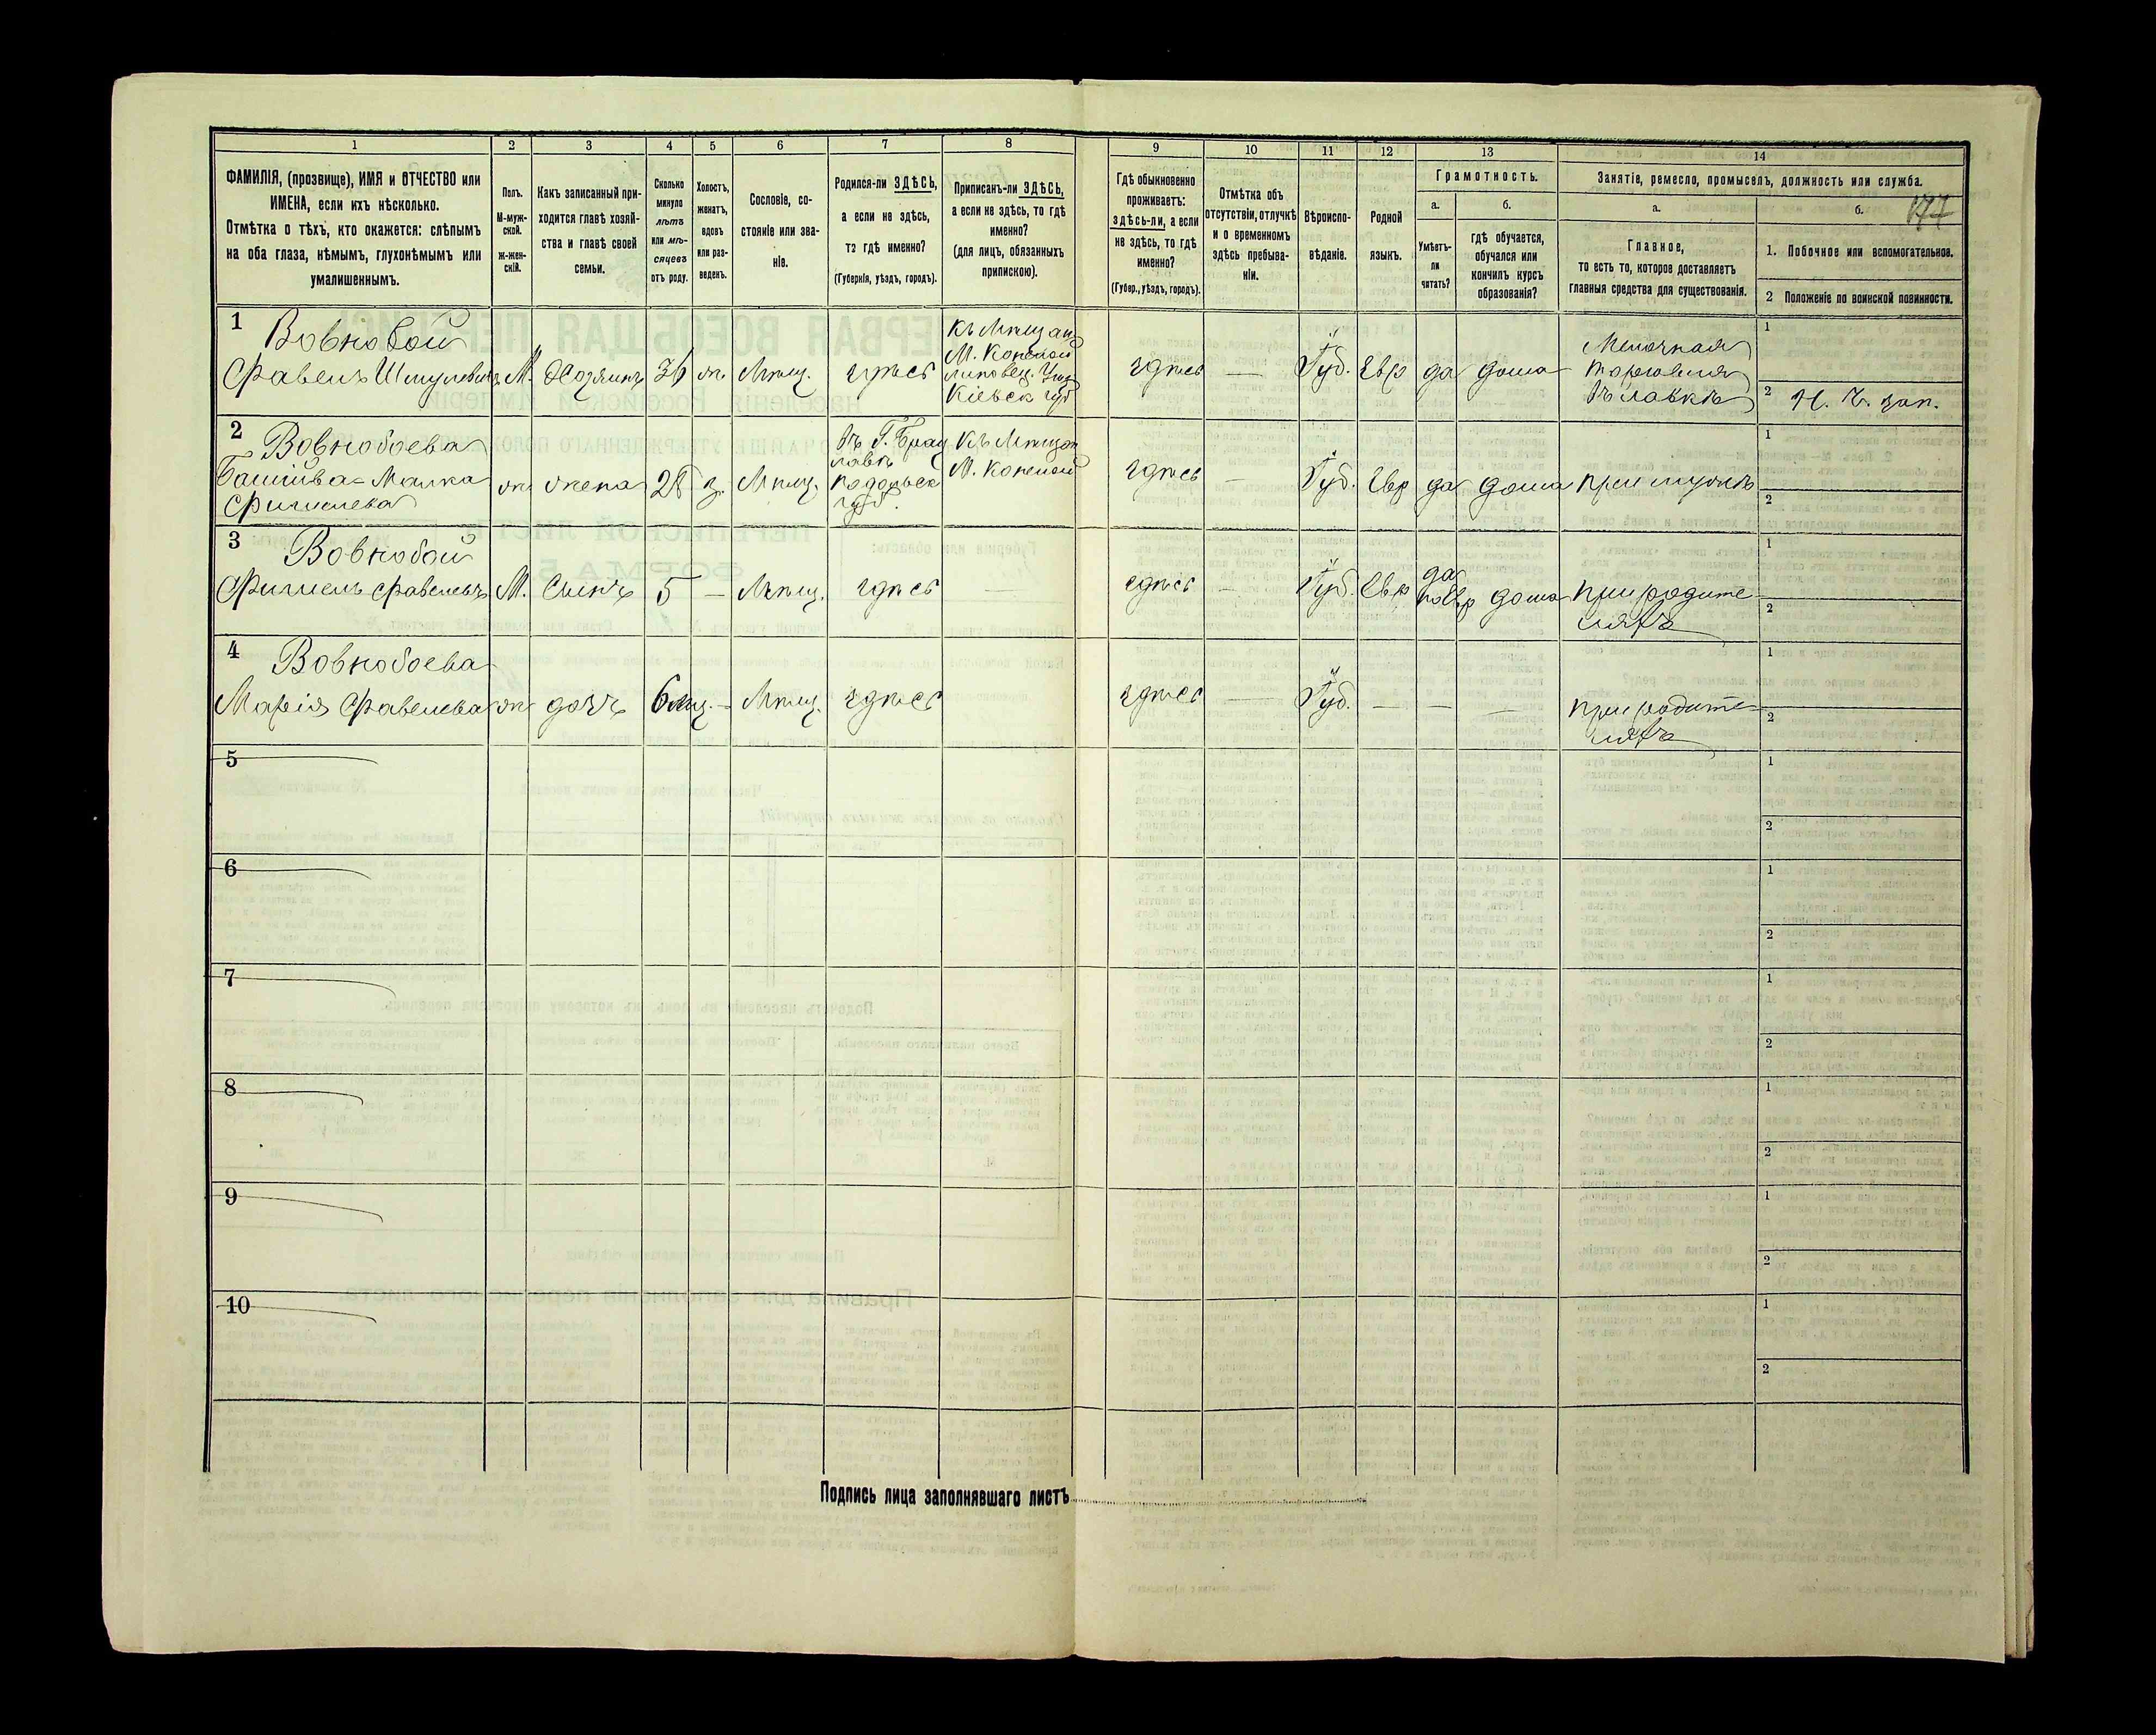 1
2
3
4
5
6
7
8
9
10
11
12
13
14
ФАМИЛІЯ, (прозвище), ИМЯ и ОТЧЕСТВО или
ИМЕНА, если ихъ нѣсколько.
Отмѣтка о тѣхъ, кто окажется: слѣпымъ
на оба глаза, нѣмымъ, глухонѣмымъ или
умалишеннымъ.
Полъ.
М-муж-
ской.
ж-жен-
скій.
Какъ записанный при-
ходится главѣ хозяй-
ства и главѣ своей
семьи.
Сколько
минуло
лѣтъ
или мѣ-
сяцевъ
отъ роду.
Холостъ,
женатъ,
вдовъ
или раз-
веденъ.
Сословіе, со-
стояніе или зва-
ніе.
Родился-ли ЗДѢСЬ,
а если не здѣсь,
то гдѣ именно?
(Губернія, уѣздъ, городъ).
Приписанъ-ли ЗДѢСЬ,
а если не здѣсь, то гдѣ
именно?
(для лицъ, обязанныхъ
припискою).
Гдѣ обыкновенно
проживаетъ:
здѣсь-ли, а если
не здѣсь, то гдѣ
именно?
(Губер., уѣздъ, городъ).
Отмѣтка объ
отсутствіи, отлучкѣ
и о временномъ
здѣсь пребыва-
ніи.
Вѣроиспо-
вѣданіе.
Родной
языкъ.
Грамотность.
а.
Умѣетъ-
ли
читать?
б.
гдѣ обучается,
обучался или
кончилъ курсъ
образованія?
Занятіе, ремесло, промыселъ, должность или служба.
а.
Главное,
то есть то, которое доставляетъ
главныя средства для существованія.
б.
177
1. Побочное или вспомогательное.
2 Положеніе по воинской повинности.
1
Вовнобой
Фавель Шмулевичъ
М.
Хозяинъ
36
ж.
Мѣщ.
здѣсь
Къ Мѣщан
М. Конелой
Липовец. Уѣзд
Кіевск губ
здѣсь
—
Іуд.
Евр
да
дома
Мелочная
торговля
въ лавкѣ
1
2 Н. Ч. зап.
2
Вовнобоева
Башива-Малка
Фишелева
ж
жена
28
з.
Мѣщ.
въ Г. Брац
лавѣ
Подольск
губ.
Къ Мѣщан
М. Конелой
здѣсь
—
Іуд.
Евр
да
дома
при мужѣ
1
2
3
Вовнобой
Фишель Фавелевъ
М.
Сынъ
5
—
Мѣщ.
здѣсь
—
здѣсь
—
Іуд.
Евр
да
по Евр
дома
при родите
ляхъ
1
2
4
Вовнобоева
Марія Фавелева
ж
дочь
6 мц.
—
Мѣщ.
здѣсь
здѣсь
—
Іуд.
—
—
—
при родите
ляхъ
1
2
5
1
2
6
1
2
7
1
2
8
1
2
9
1
2
10
1
2
Подпись лица заполнявшаго листъ